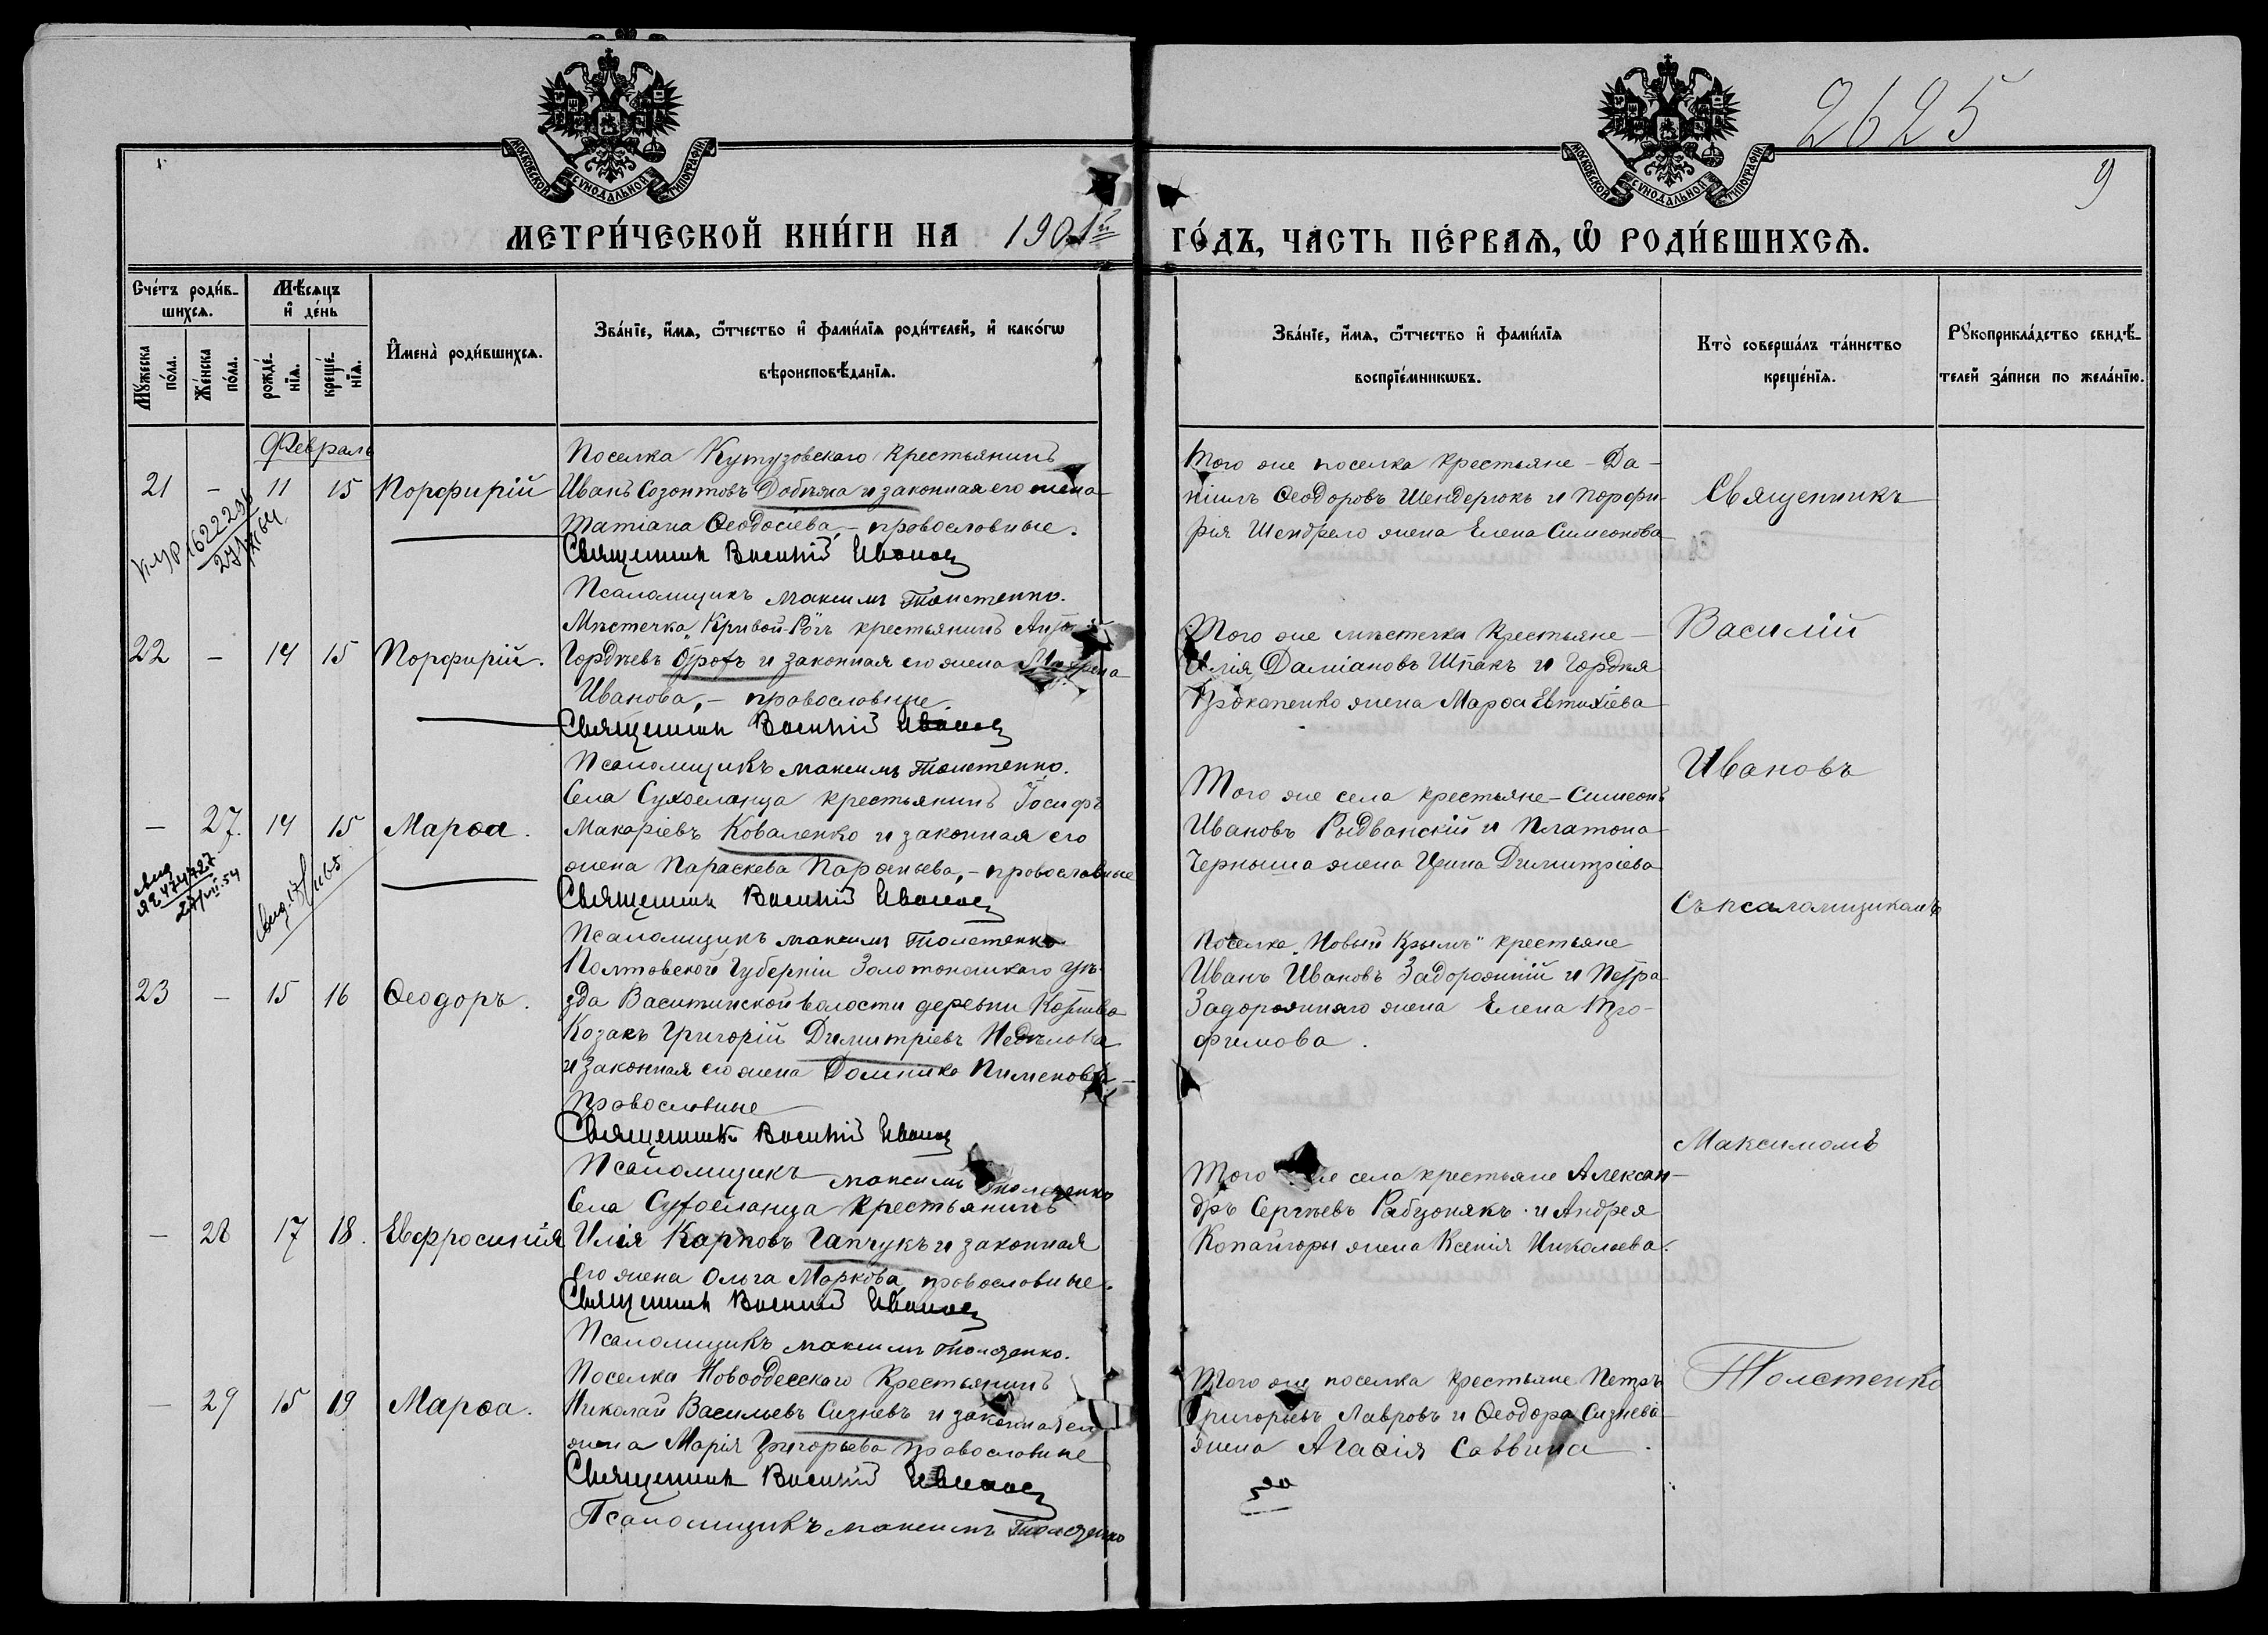 2625
9
МОСКОВСКОЙ СѴНОДАЛЬНОЙ ТИПОГРАФІИ
МОСКОВСКОЙ СѴНОДАЛЬНОЙ ТИПОГРАФІИ
МЕТРИ́ЧЕСКОЙ КНИ́ГИ НА 1901й ГО́ДЪ, ЧА́СТЬ ПЕ́РВАѦ, Ѡ҆ РОДИ́ВШИХСѦ.
Сче́тъ роди́в-
шихсѧ.
Мѣ́сѧцъ
и҆ де́нь
Мꙋ́жеска
по́ла.
Же́нска
по́ла.
рожде́-
нїѧ.
креще́-
нїѧ.
И҆мена̀ роди́вшихсѧ.
Зва́нїе, и҆́мѧ, ѻ҆́тчество и҆ фами́лїѧ роди́телей, и҆ како́гѡ
вѣроисповѣ́данїѧ.
Зва́нїе, и҆́мѧ, ѻ҆́тчество и҆ фами́лїѧ
воспрїе́мникѡвъ.
Кто̀ соверша́лъ та́инство
креще́нїѧ.
Рꙋкоприкла́дство свидѣ́-
телей за́писи по жела́нїю.
Февраль
21 - 11 15 Порфирій
Поселка Кутузовскаго крестьянинъ
Иванъ Созонтовъ Добняка и законная его жена
Татіана Ѳеодосіева, - православные.
Священник Василій Иванов
Псаломщикъ Максимъ Толстенко.
Того же поселка крестьяне - Да-
ніилъ Ѳеодоровъ Шендерюкъ и Порфи-
рия Шендрего жена Елена Симеонова
1622296
22 - 14 15 Порфирій.
Мѣстечка "Кривой-Рогъ крестьянинъ
Гордѣевъ и законная его жена
Иванова, - православные.
Священник Василій Иванов
Псаломщикъ Максимъ Толстенко.
Того же мѣстечка крестьяне -
Илія Даміановъ Шпакъ и Гордѣя
Прокопенко жена Марѳа Евтихіева
- 27. 14 15 Марѳа.
Села Сухоеланца крестьянинъ Іосифъ
Макаріевъ Коваленко и законная его
жена Параскева Парѳеньева, - православные
Священник Василій Иванов
Псаломщикъ Максимъ Толстенко
Того же села крестьяне - Симеонъ
Ивановъ Рыдванскій и Платона
Черныша жена Ирина Димитріева
23 - 15 16 Ѳеодоръ.
Полтавской губерніи Золотоношскаго уѣ-
зда волости деревни
Козакъ Григорій Димитріевъ
и законная его жена Домника Пименова -
православные
Священникъ Василій Иванов
Псаломщикъ Максимъ Толстенко
Поселка "Новый Крымъ" крестьяне
Иванъ Ивановъ Задорожній и Петра
Задорожняго жена Елена Тро-
фимова.
- 28 17 18. Евфросинія
Села Сухоеланца крестьянинъ
Илія Карповъ Гапчукъ и законная
его жена Ольга Маркова православные.
Священник Василій Иванов
Псаломщикъ Максимъ Толстенко.
Того же села крестьяне Алексан-
дръ Сергѣевъ и Андрея
Копайгоры жена Ксенія Николаева.
- 29 15 19 Марѳа.
Поселка Новоодесскаго крестьянинъ
Николай Васильевъ Сизневъ и законная его
жена Марія Григорьева православные
Священник Василій Иванов
Псаломщикъ Максимъ Толстенко
Того же поселка крестьяне Петръ
Григорьевъ Лавровъ и Ѳеодора Сизнева
жена Агаѳія Саввина.
Священникъ
Василій
Ивановъ
Съ псаломщикомъ
Максимомъ
Толстенко